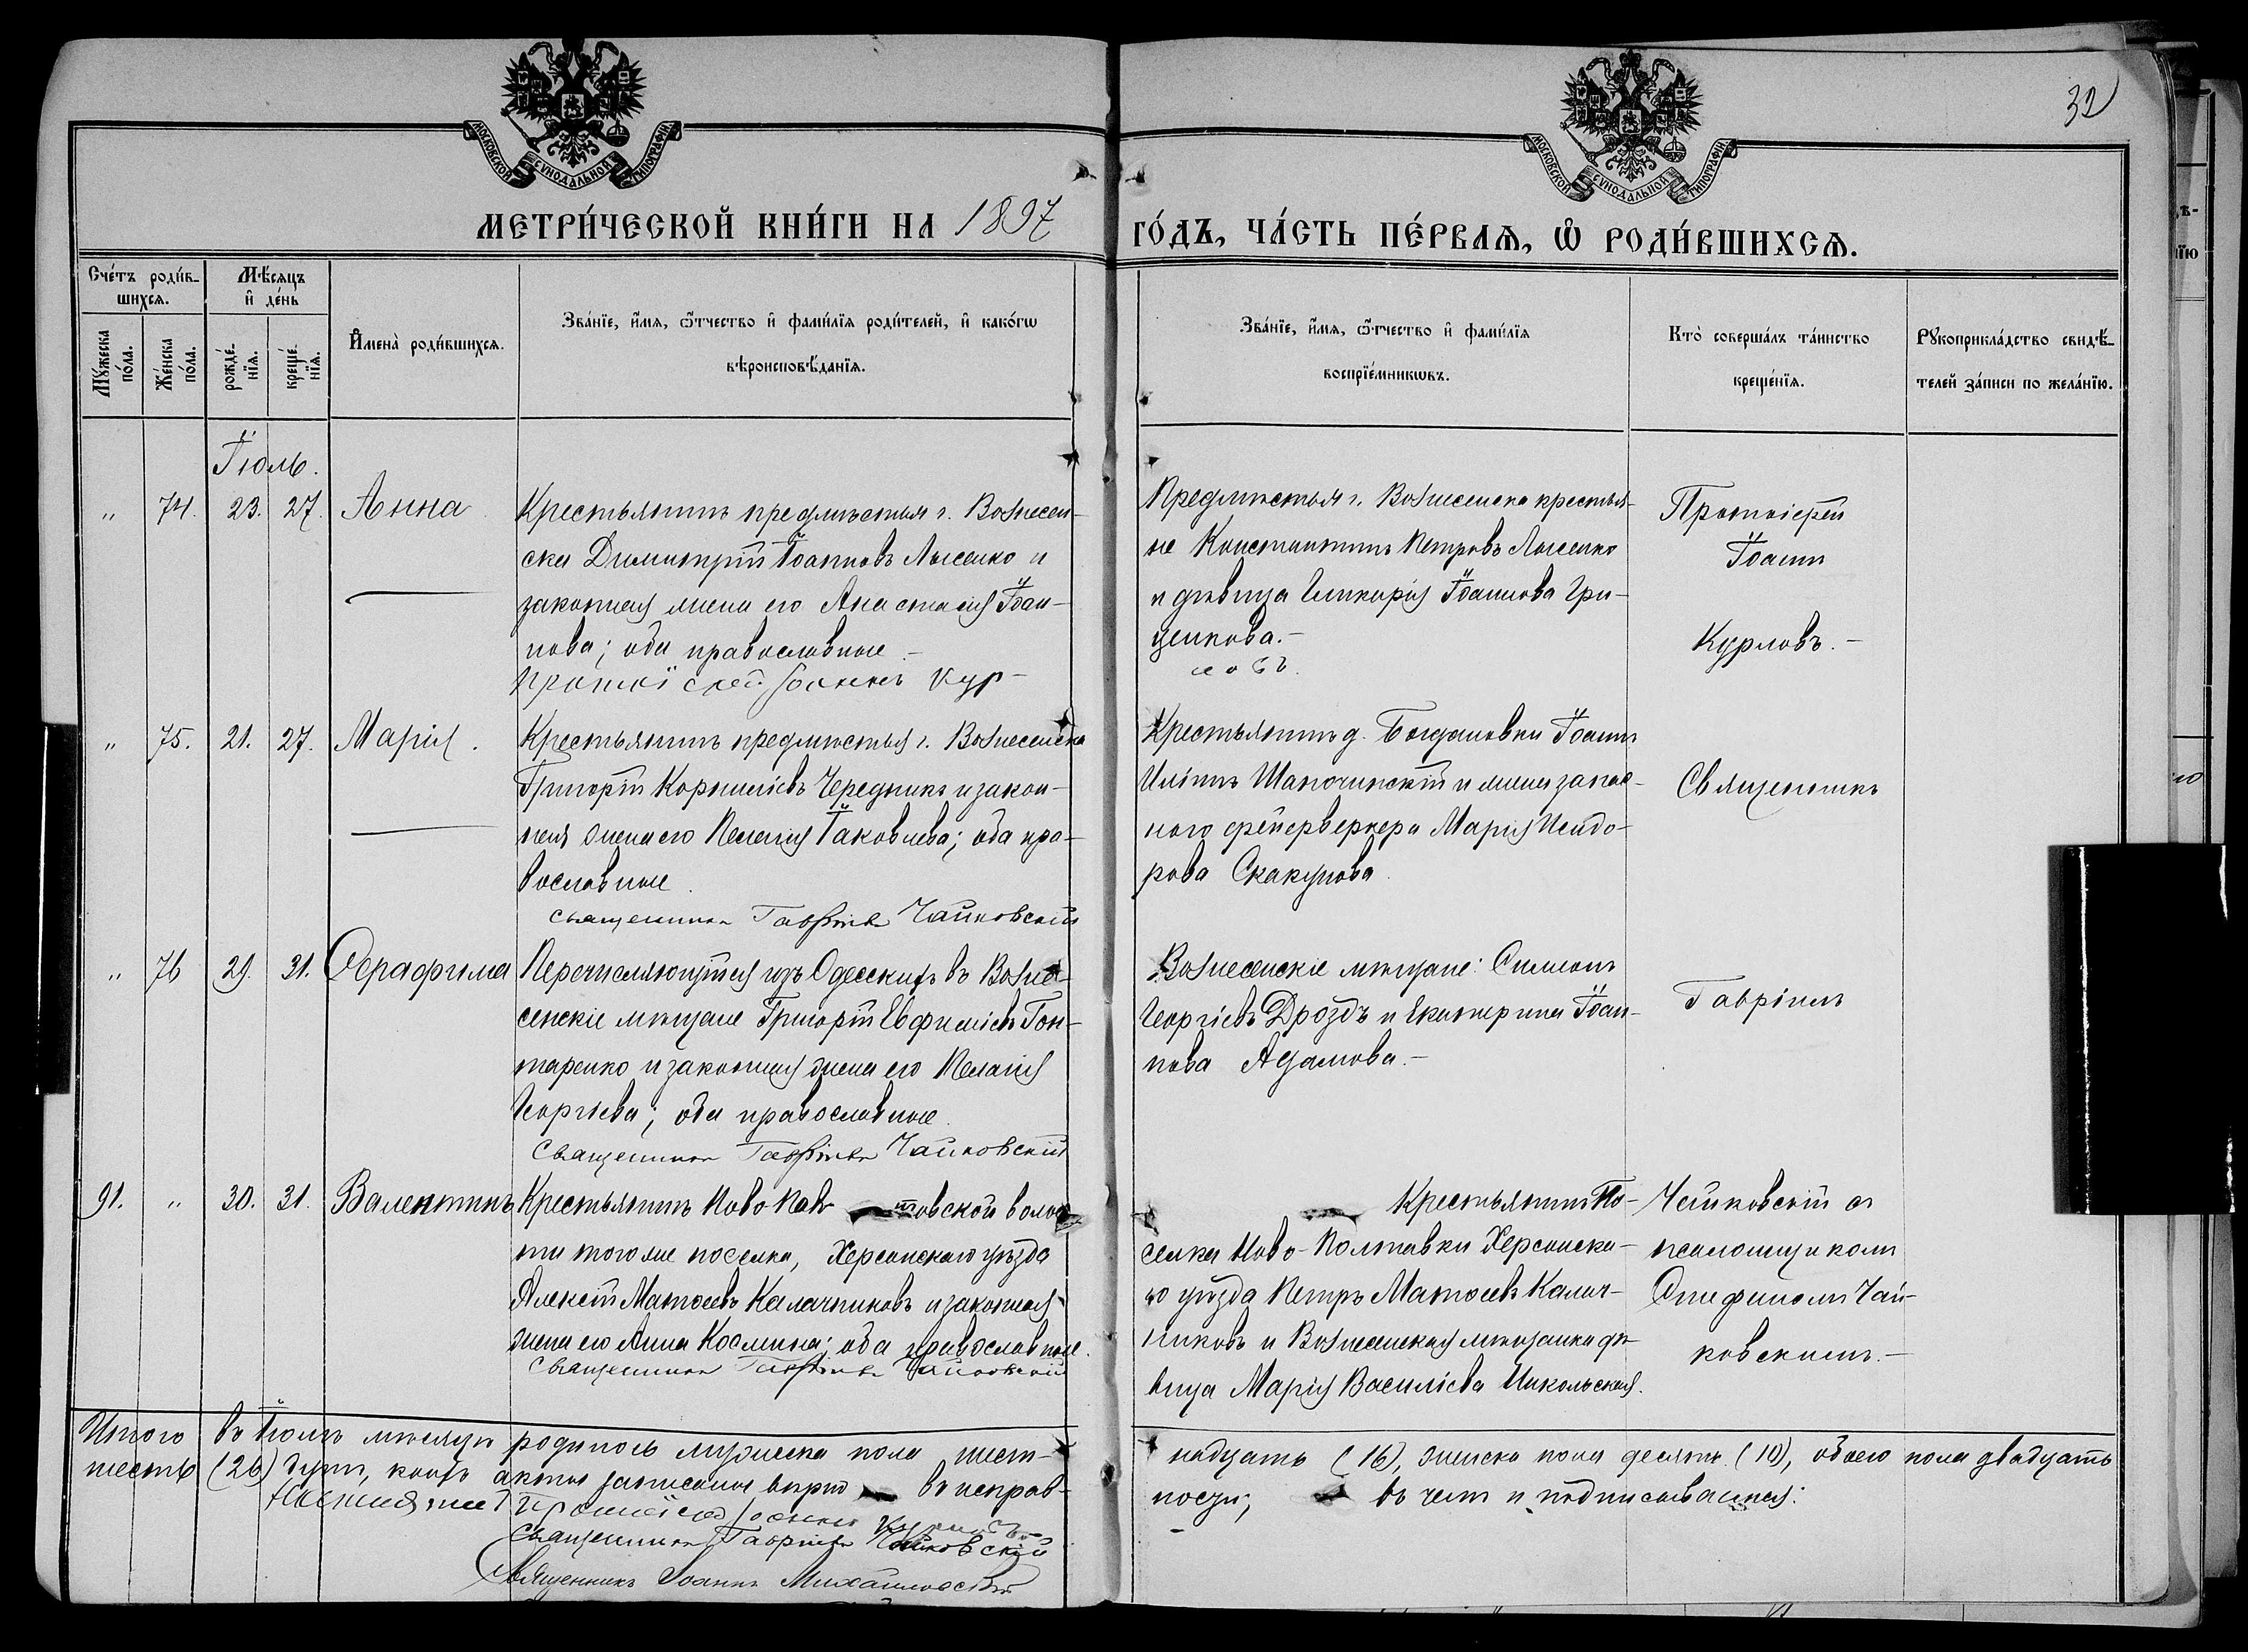 32
МОСКОВСКОЙ СѴНОДАЛЬНОЙ ТИПОГРАФІИ
МОСКОВСКОЙ СѴНОДАЛЬНОЙ ТИПОГРАФІИ
МЕТРИ́ЧЕСКОЙ КНИ́ГИ НА 1897
ГО́ДЪ, ЧА́СТЬ ПЕ́РВАѦ, Ѽ РОДИ́ВШИХСѦ.
Сче́тъ роди́в-
шихсѧ.
Мꙋ́жеска по́ла.
Же́нска по́ла.
Мѣ́сяцъ
и҆ де́нь
рожде́-
нїѧ.
креще́-
нїѧ.
И҆мена̀ роди́вшихсѧ.
Зва́нїе, и҆́мѧ, ѻ҆́тчество и҆ фами́лїѧ роди́телей, и҆ како́гѡ
вѣроисповѣ́данїѧ.
Зва́нїе, и҆́мѧ, ѻ҆́тчество и҆ фами́лїѧ
воспрїе́мникѡвъ.
Кто̀ соверша́лъ та́инство
креще́нїѧ.
Рꙋкоприкла́дство свидѣ́-
телей за́писи по жела́нїю.
Іюль.
" 74. 23. 27. Анна
Крестьянинъ предмѣстья г. Вознесен-
ска Димитрій Іоанновъ Лысенко и
законная жена его Анастасія Іоан-
нова; оба православные.-
Протоіерей Іоаннъ Кур-
Предмѣстья г. Вознесенска крестья-
не Константинъ Петровъ Лысенко
и дѣвица Гликерія Іоаннова Гри-
ценкова.-
ловъ.
Протоіерей
Іоаннъ
Курловъ.-
" 75. 21. 27. Марія.
Крестьянинъ предмѣстья г. Вознесенска
Григорій Корниліевъ Чередникъ и закон-
ная жена его Пелагія Іаковлева; оба пра-
вославные.
священникъ Гавріилъ Чайковскій
Крестьянинъ д. Богдановки Іоаннъ
Иліинъ Шапочинскій и жена запас-
ного фейерверкера Марія Исидо-
рова Скакунова.
Священникъ
" 76 29. 31. Серафима
Перечисляющіеся изъ Одесскихъ въ Возне-
сенскіе мѣщане Григорій Евфиміевъ Гон-
таренко и законная жена его Пелагія
Георгіева; оба православные.
Священникъ Гавріилъ Чайковскій
Вознесенскіе мѣщане: Симеонъ
Георгіевъ Дроздъ и Екатерина Іоан-
нова Адамова.-
Гавріилъ
91. " 30. 31. Валентинъ
Крестьянинъ Ново-Пав товской волос-
ти того же поселка, Херсонскаго уѣзда
Алексій Матѳеевъ Калачниковъ и законная
жена его Анна Космина; оба православные.
Священникъ Гавріилъ Чайковскій
Крестьянинъ По-
селка Ново-Полтавки Херсонска-
го уѣзда Петръ Матѳеевъ Калач-
никовъ и Вознесенская мѣщанка дѣ-
вица Марія Василіева Никольская.
Чайковскій съ
псаломщикомъ
Стефаномъ Чай-
ковскимъ.-
Итого въ Іюлѣ мѣсяцѣ родилось мужеска пола шест-
надцать (16), женска пола десять (10), обоего пола двадцать
шесть (26) душъ, коихъ актов записаны вѣрно въ исправ-
ности, въ чемъ и подписываемся:
Протоіерей Іоаннъ Курловъ
Священникъ Гавріилъ Чайковскій
Священникъ Іоаннъ Михайловскій